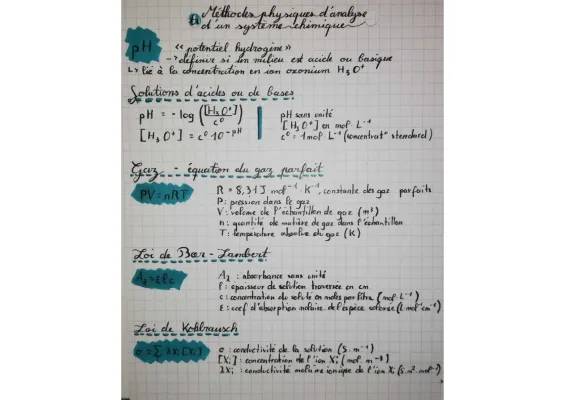 Méthodes physiques d'analyse
d'un système chimique
pH
"potentiel hydrogène"
-> définir si un milieu est acide ou basique
L> lié à la concentration en ion oxonium H₃O⁺
Solutions d'acides ou de bases
pH = - log ([H₃O⁺]/c⁰)
pH sans unité
[H₃O⁺] en mol. L⁻¹
[H₃O⁺] = c⁰ 10⁻ᵖᴴ
c⁰ = 1 mol. L⁻¹ (concentrat° standard)
Gaz - équation du gaz parfait
PV = nRT
R = 8,31 J mol⁻¹. K⁻¹, constante des gaz parfaits
P: pression dans le gaz
V: volume de l'échantillon de gaz (m³)
n: quantité de matière de gaz dans l'échantillon
T: température absolue du gaz (K)
Loi de Beer - Lambert
A₂ = εlc
A₂ : absorbance sans unité
l : épaisseur de solution traversée en cm
c : concentration du soluté en moles par litre (mol. L⁻¹)
ε : coef d'absorption molaire de l'espèce (L mol⁻¹cm⁻¹)
Loi de Kohlrausch
σ = Σ λxi [Xi]
σ : conductivité de la solution (S. m⁻¹)
[Xi] : concentration de l'ion Xi (mol. m⁻³)
λXi : conductivité molaire ionique de l'ion Xi (S.m².mol⁻¹)